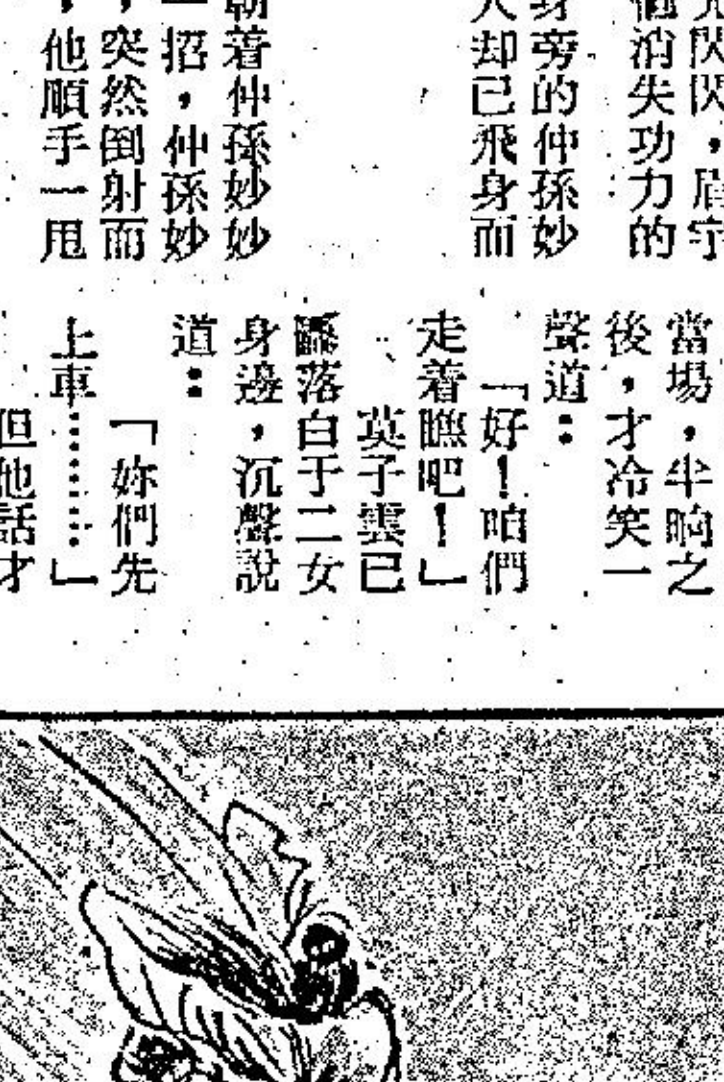 閃閃，眉宇
他消失功力的
身旁的仲孫妙
人却已飛身而
朝着仲孫妙妙
一招，仲孫妙
，突然倒射而
，他順手一甩
當場，半晌之
後，才冷笑一
聲道：
「好！咱們
走着瞧吧！」
莫子雲已
飄落白于二女
身邊，沉聲說
道：
「妳們先
上車⋯⋯⋯」
但他話才